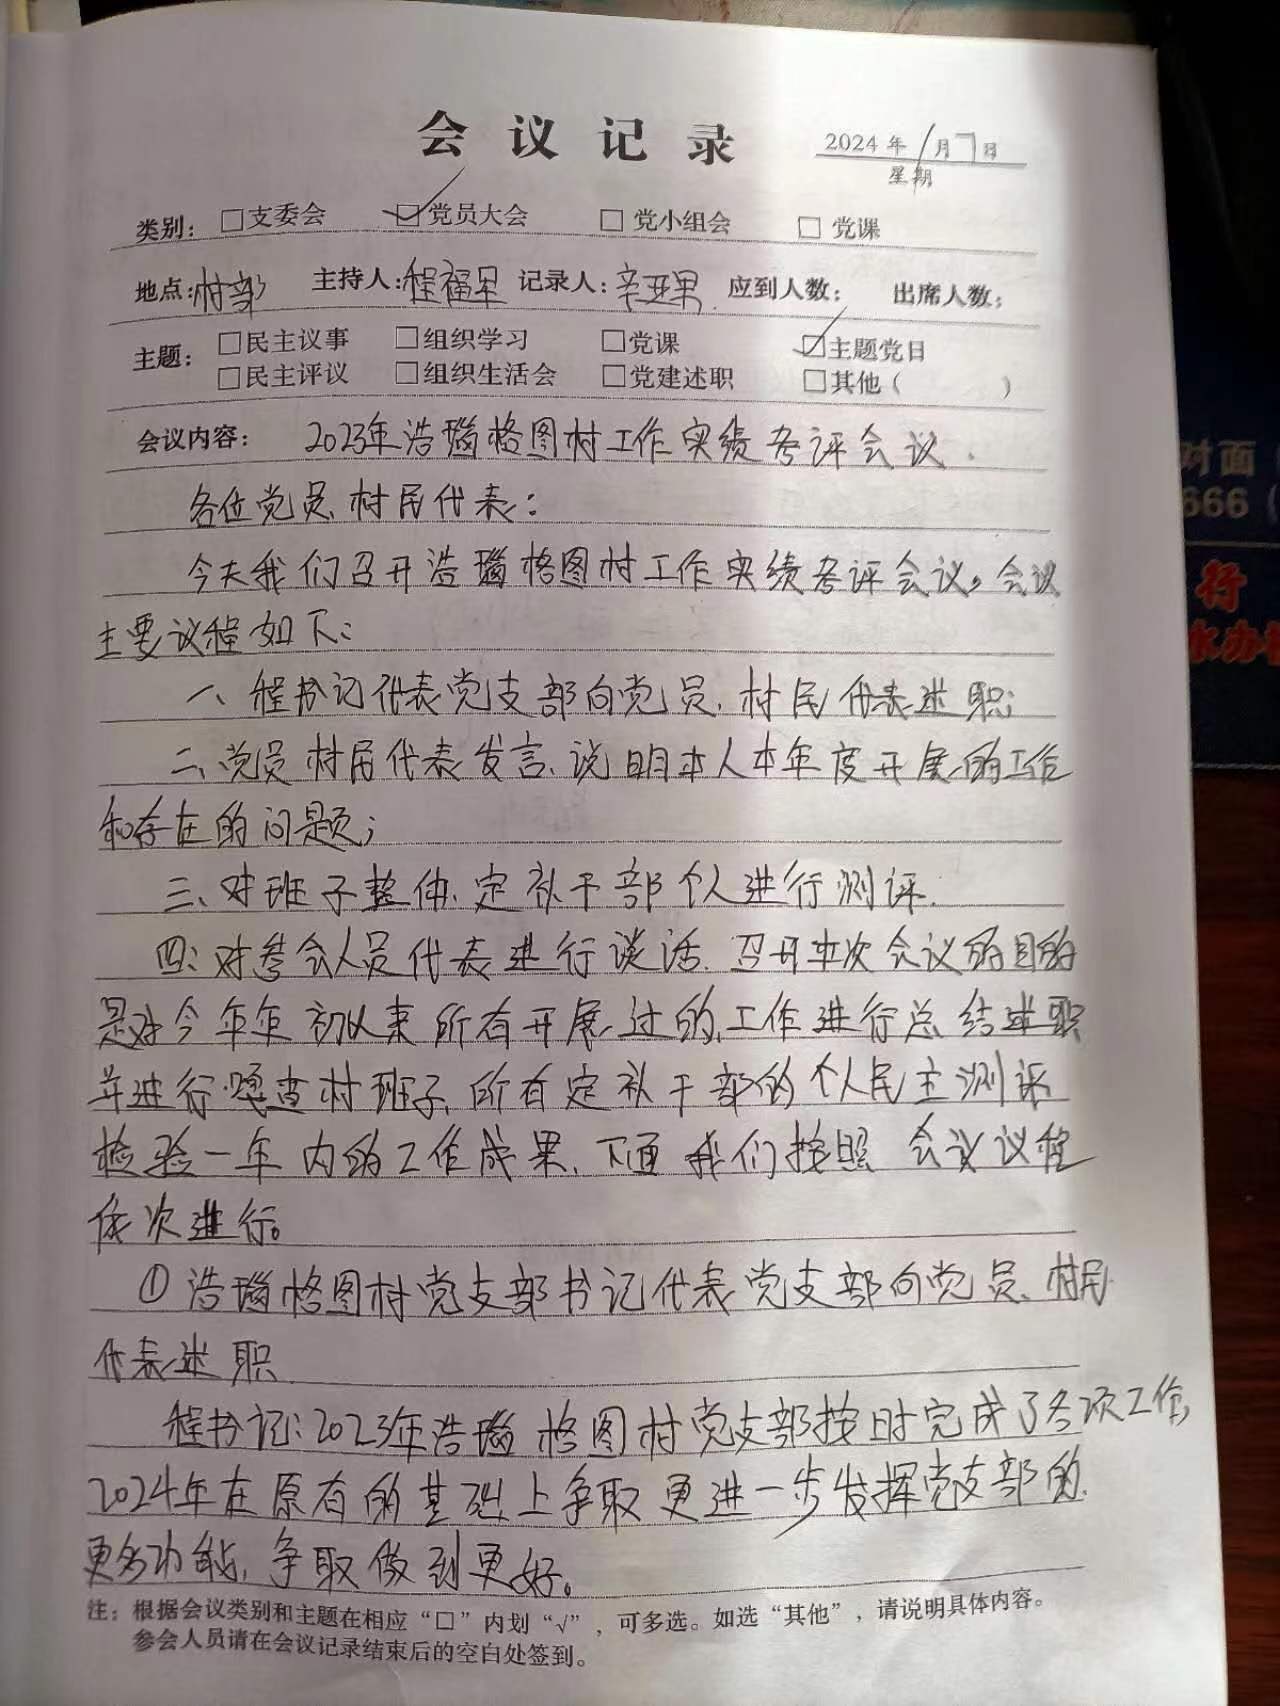 会议记录
2024年1月7日
星期
类别：□支委会 ☑党员大会 □党小组会 □党课
地点：村部 主持人：程福军 记录人：辛亚男 应到人数： 出席人数：
主题：□民主议事 □组织学习 □党课 ☑主题党日
□民主评议 □组织生活会 □党建述职 □其他（ ）
会议内容： 2023年浩瑙格图村工作实绩考评会议.
各位党员、村民代表：
今天我们召开浩瑙格图村工作实绩考评会议，会议
主要议程如下：
一、程书记代表党支部向党员、村民代表述职；
二、党员村民代表发言、说明本人本年度开展的工作
和存在的问题；
三、对班子整体、定补干部个人进行测评.
四：对参会人员代表进行谈话.召开本次会议的目的
是对今年年初以来所有开展过的工作进行总结述职
并进行嘎查村班子、所有定补干部的个人民主测评
检验一年内的工作成果、下面我们按照会议议程
依次进行。
①浩瑙格图村党支部书记代表党支部向党员、村民
代表述职
程书记：2023年浩瑙格图村党支部按时完成了各项工作，
2024年在原有的基础上争取更进一步发挥党支部的
更多功能，争取做到更好。
注：根据会议类别和主题在相应“□”内划“√”，可多选。如选“其他”，请说明具体内容。
参会人员请在会议记录结束后的空白处签到。
对面
666
行
水办